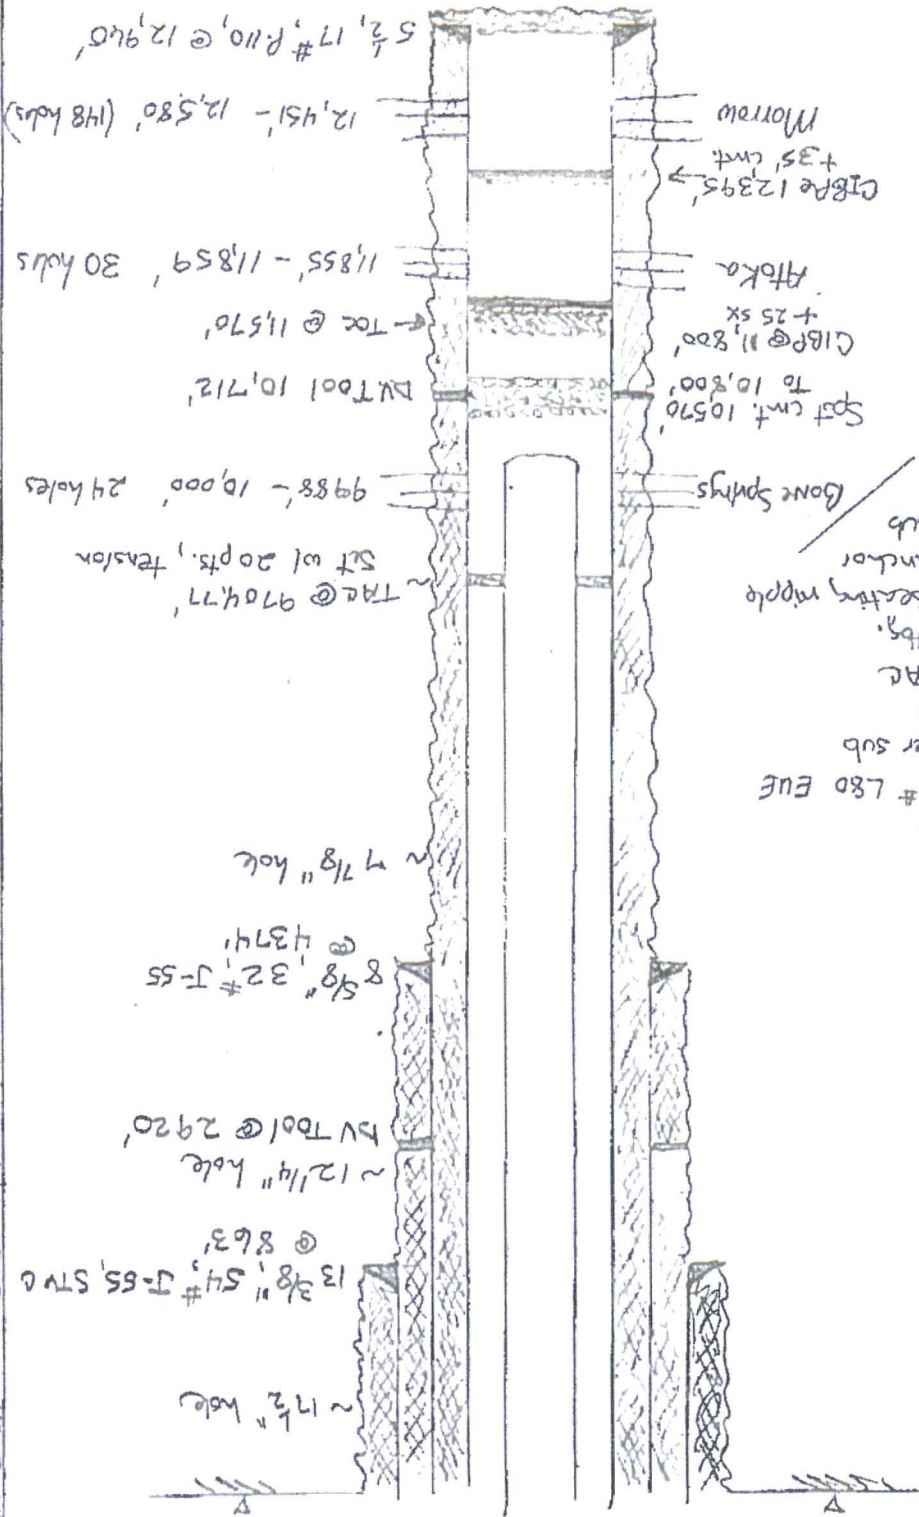 ~ 17 1/2" hole
13 3/8", 54#, J-55, STVC
@ 863'
~ 12 1/4" hole
DV Tool @ 2920'
8 5/8", 32#, J-55
@ 4374'
~ 7 7/8" hole
# L80 EUE
er sub
AC
tbg.
seating nipple
nchor
ub
TAC @ 9704.77'
Set w/ 20 pts. tension
Bone Springs
9988' - 10,000' 24 holes
Spot cmt. 10570'
To 10,800'
DV Tool 10,712'
CIBP @ 11,800'
+ 25 sx
TOC @ 11,570'
Atoka
11,855' - 11,859' 30 holes
CIBP @ 12,395'
+ 35' cmt.
Morrow
12,451' - 12,580' (148 holes)
5 1/2, 17# P-110, @ 12,940'